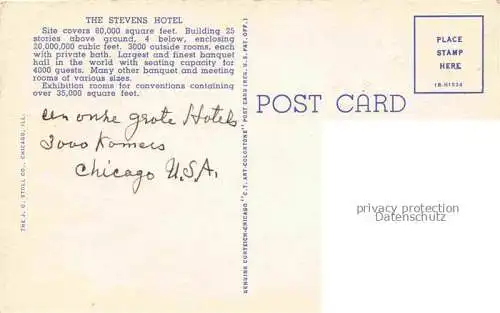 THE STEVENS HOTEL
Site covers 80,000 square feet. Building 25
stories above ground, 4 below, enclosing
20,000,000 cubic feet. 3000 outside rooms, each
with private bath. Largest and finest banquet
hall in the world with seating capacity for
4000 guests. Many other banquet and meeting
rooms of various sizes.
Exhibition rooms for conventions containing
over 35,000 square feet.
grote Hotels
3000 Kamers
Chicago U.S.A.
THE J. O. STOLL CO., CHICAGO, ILL.
GENUINE CURTEICH-CHICAGO "C.T. ART-COLORTONE" POST CARD (REG. U.S. PAT. OFF.)
POST CARD
PLACE
STAMP
HERE
1B-H1534
privacy protection
Datenschutz